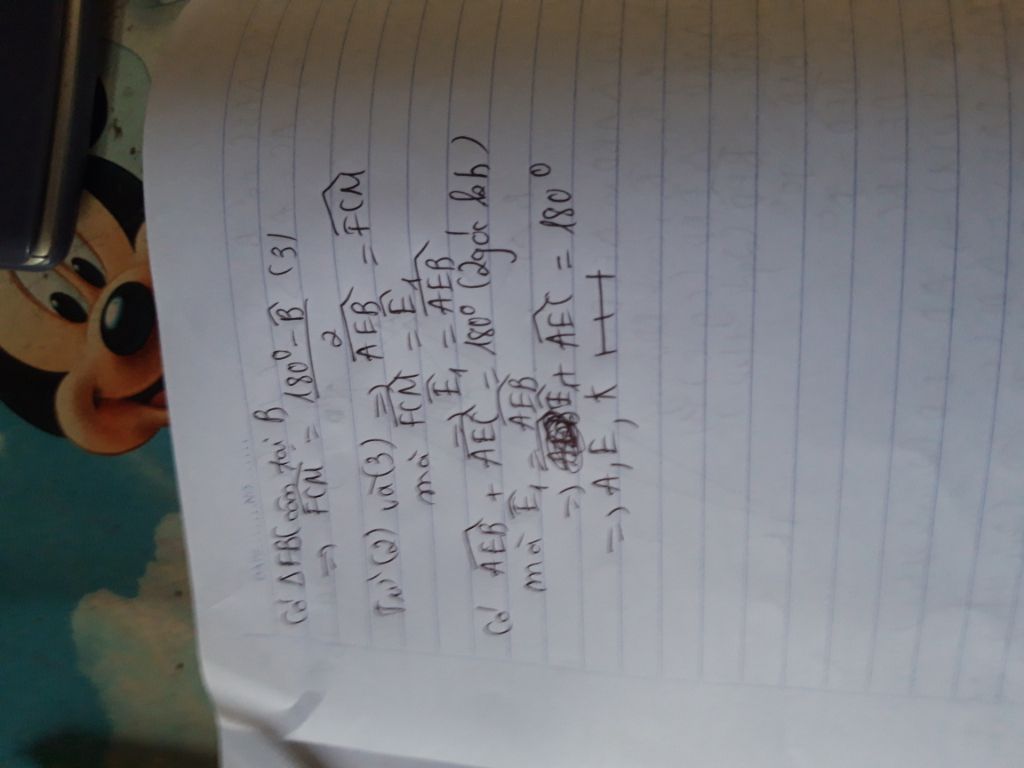 Có ΔFBC cân tại B
=> FCM = 180° - B (3)
2
Từ (2) và (3) => AEB = FCM
mà FCM = E1
=> E1 = AEB
Có AEB + AEC = 180° (2 góc kbh)
mà E1 = AEB
=> E1 + AEC = 180°
=> A, E, K